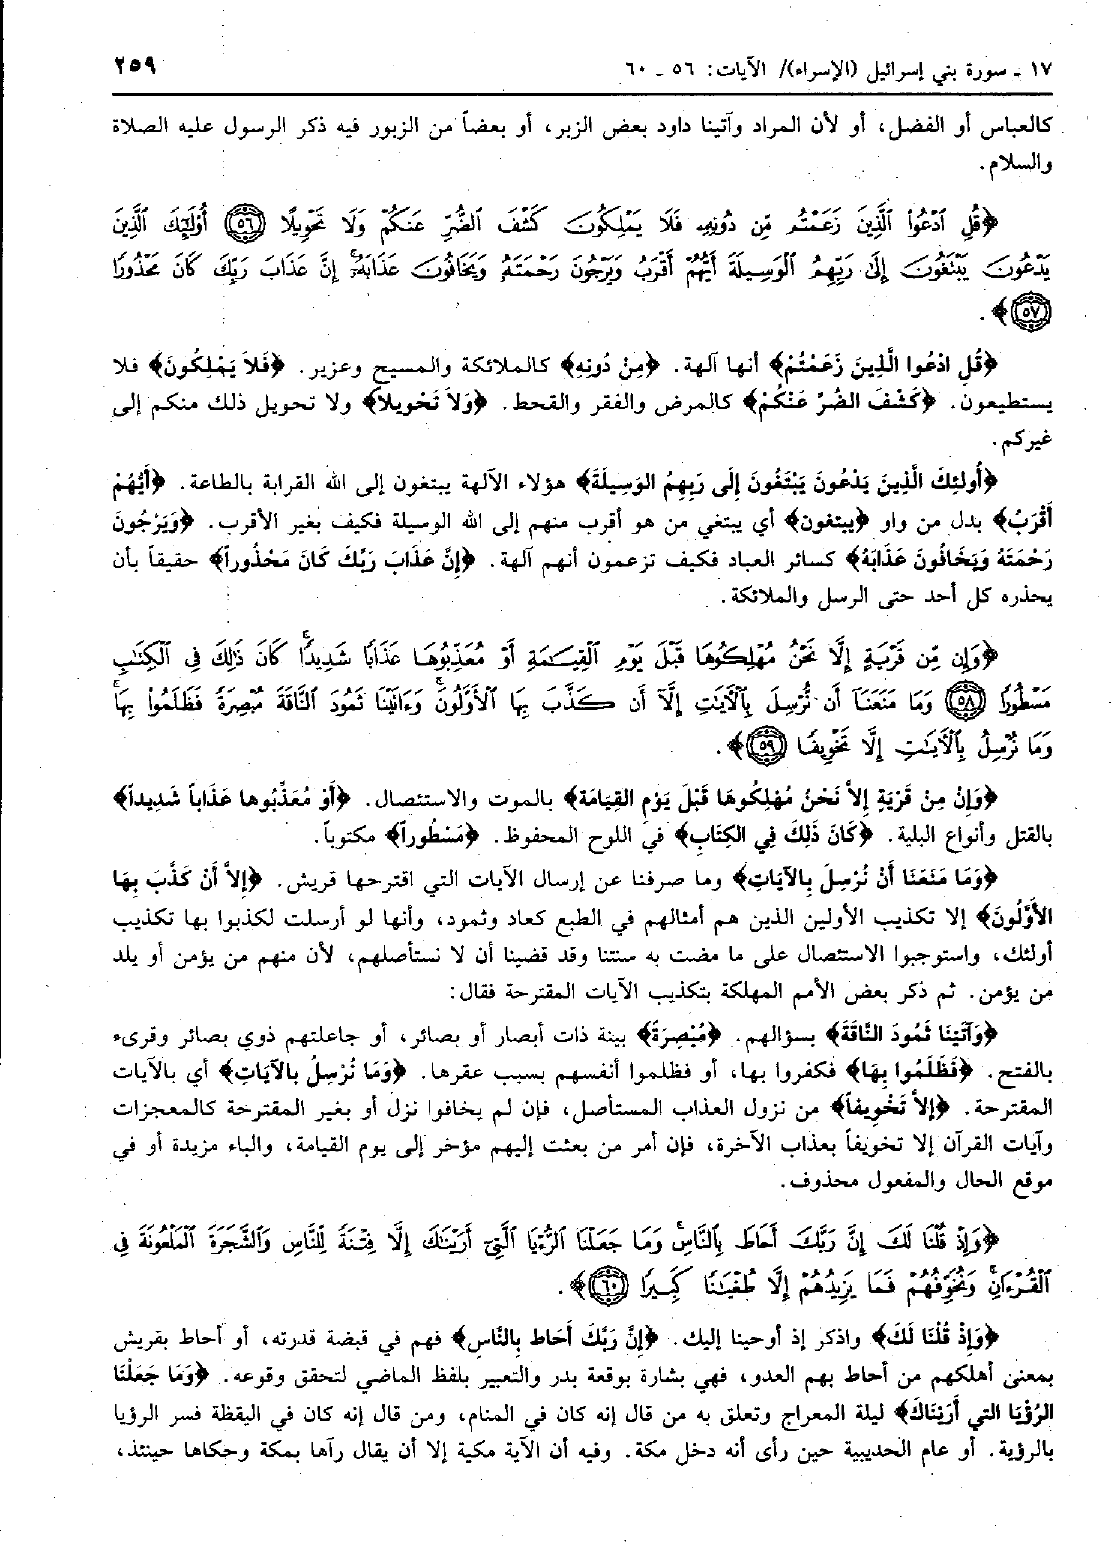 ١٧ ـ سورة بني إسرائيل (الإسراء)/ الآيات: ٥٦ ـ ٦٠ ٢٥٩
كالعباس أو الفضل، أو لأن المراد وآتينا داود بعض الزبر، أو بعضاً من الزبور فيه ذكر الرسول عليه الصلاة
والسلام.
﴿قُلِ ٱدْعُوا۟ ٱلَّذِينَ زَعَمْتُم مِّن دُونِهِۦ فَلَا يَمْلِكُونَ كَشْفَ ٱلضُّرِّ عَنكُمْ وَلَا تَحْوِيلًا ﴿٥٦﴾ أُو۟لَٰٓئِكَ ٱلَّذِينَ
يَدْعُونَ يَبْتَغُونَ إِلَىٰ رَبِّهِمُ ٱلْوَسِيلَةَ أَيُّهُمْ أَقْرَبُ وَيَرْجُونَ رَحْمَتَهُۥ وَيَخَافُونَ عَذَابَهُۥٓ ۚ إِنَّ عَذَابَ رَبِّكَ كَانَ مَحْذُورًا
﴿٥٧﴾﴾.
﴿قُلِ ادْعُوا الَّذِينَ زَعَمْتُمْ﴾ أنها آلهة. ﴿مِنْ دُونِهِ﴾ كالملائكة والمسيح وعزير. ﴿فَلاَ يَمْلِكُونَ﴾ فلا
يستطيعون. ﴿كَشْفَ الضُرِّ عَنْكُمْ﴾ كالمرض والفقر والقحط. ﴿وَلاَ تَحْوِيلاً﴾ ولا تحويل ذلك منكم إلى
غيركم.
﴿أُولئِكَ الَّذِينَ يَدْعُونَ يَبْتَغُونَ إِلَى رَبِهِمُ الوَسِيلَةَ﴾ هؤلاء الآلهة يبتغون إلى الله القرابة بالطاعة. ﴿أَيُّهُمْ
أَقْرَبُ﴾ بدل من واو ﴿يبتغون﴾ أي يبتغي من هو أقرب منهم إلى الله الوسيلة فكيف بغير الأقرب. ﴿وَيَرْجُونَ
رَحْمَتَهُ وَيَخَافُونَ عَذَابَهُ﴾ كسائر العباد فكيف تزعمون أنهم آلهة. ﴿إِنَّ عَذَابَ رَبِّكَ كَانَ مَحْذُوراً﴾ حقيقاً بأن
يحذره كل أحد حتى الرسل والملائكة.
﴿وَإِن مِّن قَرْيَةٍ إِلَّا نَحْنُ مُهْلِكُوهَا قَبْلَ يَوْمِ ٱلْقِيَٰمَةِ أَوْ مُعَذِّبُوهَا عَذَابًا شَدِيدًا ۚ كَانَ ذَٰلِكَ فِى ٱلْكِتَٰبِ
مَسْطُورًا ﴿٥٨﴾ وَمَا مَنَعَنَآ أَن نُّرْسِلَ بِٱلْءَايَٰتِ إِلَّآ أَن كَذَّبَ بِهَا ٱلْأَوَّلُونَ ۚ وَءَاتَيْنَا ثَمُودَ ٱلنَّاقَةَ مُبْصِرَةً فَظَلَمُوا۟ بِهَا ۚ
وَمَا نُرْسِلُ بِٱلْءَايَٰتِ إِلَّا تَخْوِيفًا ﴿٥٩﴾﴾.
﴿وَإِنْ مِنْ قَرْيَةٍ إِلاَّ نَحْنُ مُهْلِكُوهَا قَبْلَ يَوْمِ القِيَامَة﴾ بالموت والاستئصال. ﴿أَوْ مُعَذِّبُوها عَذَاباً شَدِيداً﴾
بالقتل وأنواع البلية. ﴿كَانَ ذَلِكَ فِي الكِتَابِ﴾ في اللوح المحفوظ. ﴿مَسْطُوراً﴾ مكتوباً.
﴿وَمَا مَنَعَنَا أَنْ نُرْسِلَ بِالآيَاتِ﴾ وما صرفنا عن إرسال الآيات التي اقترحها قريش. ﴿إِلاَّ أَنْ كَذَّبَ بِهَا
الأَوَّلُونَ﴾ إلا تكذيب الأولين الذين هم أمثالهم في الطبع كعاد وثمود، وأنها لو أرسلت لكذبوا بها تكذيب
أولئك، واستوجبوا الاستئصال على ما مضت به سنتنا وقد قضينا أن لا نستأصلهم، لأن منهم من يؤمن أو يلد
من يؤمن. ثم ذكر بعض الأمم المهلكة بتكذيب الآيات المقترحة فقال:
﴿وَآتَيْنَا ثَمُودَ النَّاقَةَ﴾ بسؤالهم. ﴿مُبْصِرَةً﴾ بينة ذات أبصار أو بصائر، أو جاعلتهم ذوي بصائر وقرىء
بالفتح. ﴿فَظَلَمُوا بِهَا﴾ فكفروا بها، أو فظلموا أنفسهم بسبب عقرها. ﴿وَمَا نُرْسِلُ بِالآيَاتِ﴾ أي بالآيات
المقترحة. ﴿إِلاَّ تَخْوِيفاً﴾ من نزول العذاب المستأصل، فإن لم يخافوا نزل أو بغير المقترحة كالمعجزات
وآيات القرآن إلا تخويفاً بعذاب الآخرة، فإن أمر من بعثت إليهم مؤخر إلى يوم القيامة، والباء مزيدة أو في
موقع الحال والمفعول محذوف.
﴿وَإِذْ قُلْنَا لَكَ إِنَّ رَبَّكَ أَحَاطَ بِٱلنَّاسِ ۚ وَمَا جَعَلْنَا ٱلرُّءْيَا ٱلَّتِىٓ أَرَيْنَٰكَ إِلَّا فِتْنَةً لِّلنَّاسِ وَٱلشَّجَرَةَ ٱلْمَلْعُونَةَ فِى
ٱلْقُرْءَانِ ۚ وَنُخَوِّفُهُمْ فَمَا يَزِيدُهُمْ إِلَّا طُغْيَٰنًا كَبِيرًا ﴿٦٠﴾﴾.
﴿وَإِذْ قُلْنَا لَكَ﴾ واذكر إذ أوحينا إليك. ﴿إِنَّ رَبَّكَ أَحَاطَ بِالنَّاسِ﴾ فهم في قبضة قدرته، أو أحاط بقريش
بمعنى أهلكهم من أحاط بهم العدو، فهي بشارة بوقعة بدر والتعبير بلفظ الماضي لتحقق وقوعه. ﴿وَمَا جَعَلْنَا
الرُؤْيَا التي أَرَيْنَاكَ﴾ ليلة المعراج وتعلق به من قال إنه كان في المنام، ومن قال إنه كان في اليقظة فسر الرؤيا
بالرؤية. أو عام الحديبية حين رأى أنه دخل مكة. وفيه أن الآية مكية إلا أن يقال رآها بمكة وحكاها حينئذ،